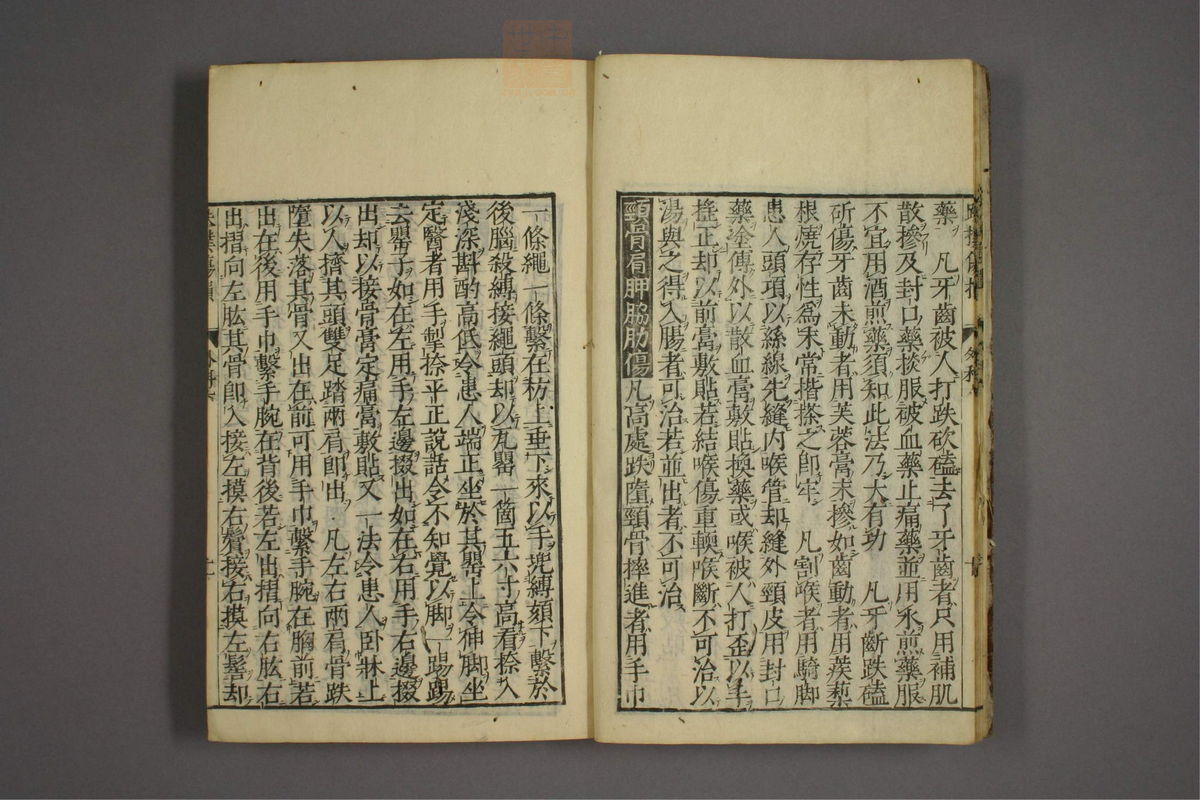 藥　凡牙齒被人打跌砍磕去了牙齒者只用補肌
散摻及封口藥掞服被血藥止痛藥並用水煎藥服
不宜用酒煎藥須知此法乃大有功　凡牙齗跌磕
斫傷牙齒未動者用芙蓉膏末摻如齒動者用蒺藜
根燒存性為末常揩搽之即牢　凡割喉者用騎脚
患人頭項以絲線先縫内喉管却縫外頸皮用封口
藥塗傅外以散血膏敷貼換藥或喉被人打歪以手
搖正却以前膏敷貼若結喉傷重輭喉斷不可治以
湯與之得入腸者可治若並出者不可治
頸骨肩胛脇肋傷凡高處跌墮頸骨摔進者用手巾
一條繩一條繫在枋上垂下來以手兜縛頦下繫於
後腦殺縛接繩頭却以瓦罌一箇五六寸高看捺入
淺深斟酌高低令患人端正坐於其罌上令伸脚坐
定醫者用手掣捺平正說話令不知覺以脚一踢踢
去罌子如在左用手左邊掇出如在右用手右邊掇
出却以接骨膏定痛膏敷貼又一法令患人卧牀上
以人擠其頭雙足踏兩肩即出　凡左右兩肩骨跌
墮失落其骨叉出在前可用手巾繫手腕在胸前若
出在後用手巾繫手腕在背後若左出揩向右肱右
出揩向左肱其骨即入接左摸右鬢接右摸左鬢却